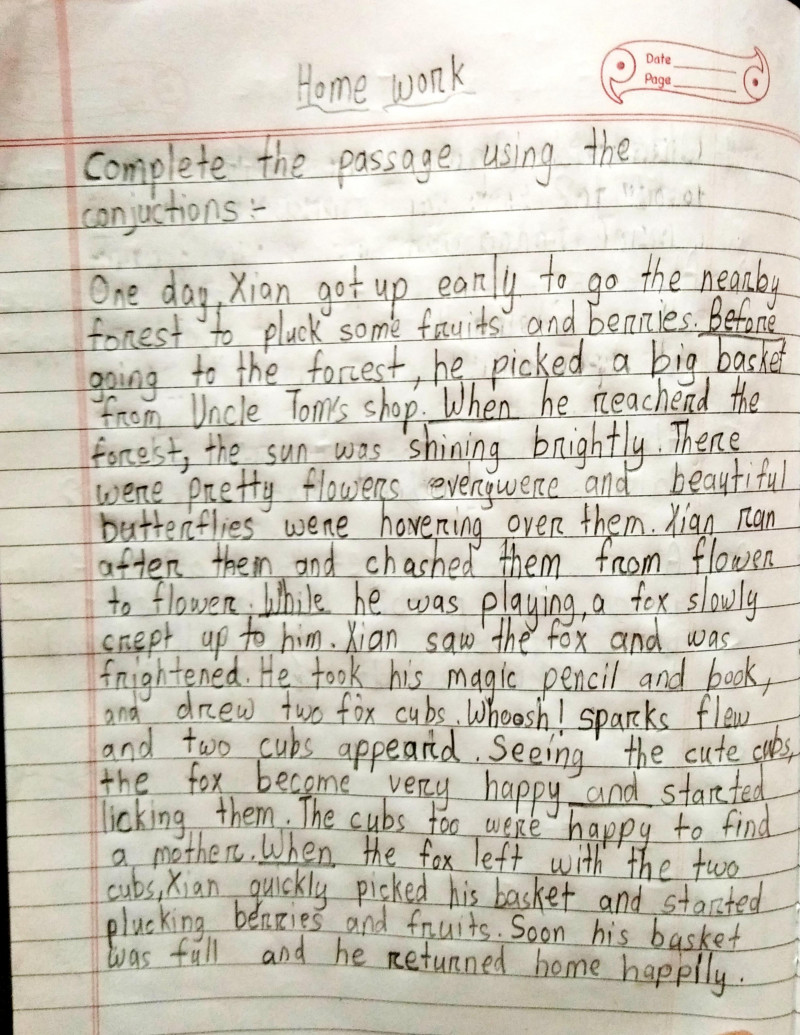 Home work
Date
Page
Complete the passage using the
conjuctions :-
One day, Xian got up early to go the nearby
forest to pluck some fruits and berries. Before
going to the forrest, he picked a big basket
from Uncle Tom's shop. When he reacherd the
forest, the sun was shining brightly. There
were pretty flowers everywere and beautiful
butterflies were hovering over them. Xian ran
after them and chashed them from flower
to flower. While he was playing, a fox slowly
crept up to him. Xian saw the fox and was
frightened. He took his magic pencil and book,
and drew two fox cubs. Whoosh! sparks flew
and two cubs appeard. Seeing the cute cubs,
the fox become very happy and started
licking them. The cubs too were happy to find
a mother. When the fox left with the two
cubs, Xian quickly picked his basket and started
plucking berries and fruits. Soon his basket
was full and he returned home happily.